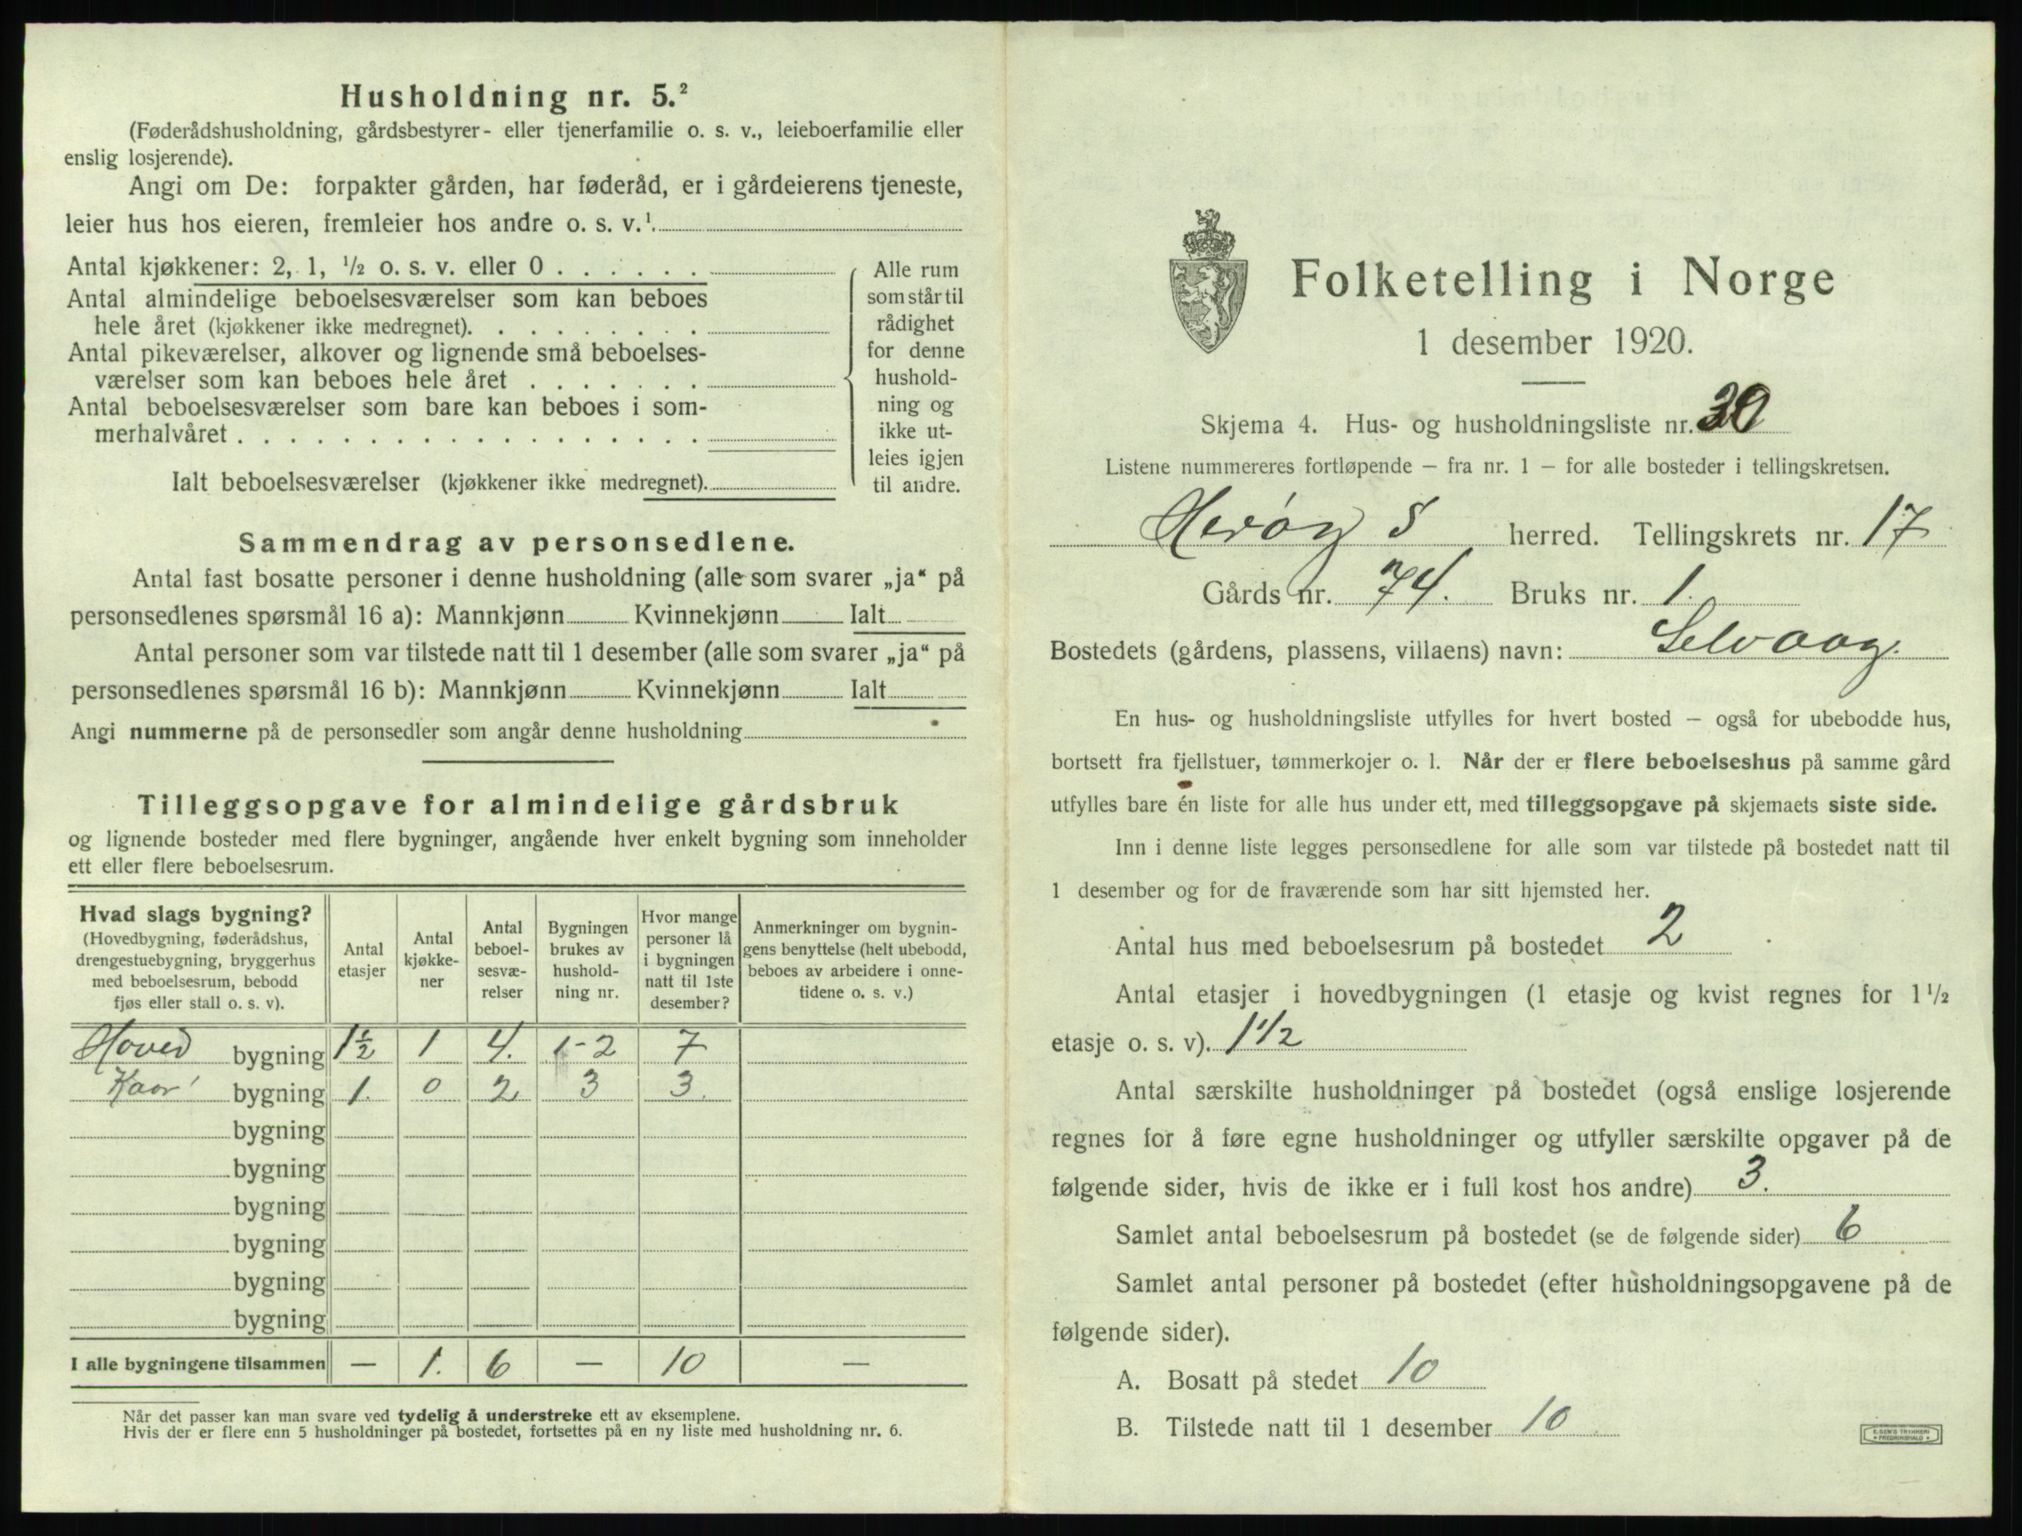 Husholdning nr. 5.²
(Føderådshusholdning, gårdsbestyrer- eller tjenerfamilie o. s. v., leieboerfamilie eller
enslig losjerende).
Angi om De: forpakter gården, har føderåd, er i gårdeierens tjeneste,
leier hus hos eieren, fremleier hos andre o. s. v.¹
Antal kjøkkener: 2, 1, ½ o. s. v. eller 0
Antal almindelige beboelsesværelser som kan beboes
hele året (kjøkkener ikke medregnet).
Antal pikeværelser, alkover og lignende små beboelses-
værelser som kan beboes hele året
Antal beboelsesværelser som bare kan beboes i som-
merhalvåret
Ialt beboelsesværelser (kjøkkener ikke medregnet).
Alle rum
som står til
rådighet
for denne
hushold-
ning og
ikke ut-
leies igjen
til andre.
Sammendrag av personsedlene.
Antal fast bosatte personer i denne husholdning (alle som svarer „ja“ på
personsedlenes spørsmål 16 a): Mannkjønn Kvinnekjønn Ialt
Antal personer som var tilstede natt til 1 desember (alle som svarer „ja“ på
personsedlenes spørsmål 16 b): Mannkjønn Kvinnekjønn Ialt
Angi nummerne på de personsedler som angår denne husholdning
Tilleggsopgave for almindelige gårdsbruk
og lignende bosteder med flere bygninger, angående hver enkelt bygning som inneholder
ett eller flere beboelsesrum.
Hvad slags bygning?
(Hovedbygning, føderådshus,
drengestuebygning, bryggerhus
med beboelsesrum, bebodd
fjøs eller stall o. s. v).
Antal
etasjer
Antal
kjøkke-
ner
Antal
beboel-
sesvæ-
relser
Bygningen
brukes av
hushold-
ning nr.
Hvor mange
personer lå
i bygningen
natt til 1ste
desember?
Anmerkninger om bygnin-
gens benyttelse (helt ubebodd,
beboes av arbeidere i onne-
tidene o. s. v.)
Hoved bygning 1½ 1 4. 1-2 7
Kaar bygning 1. 0 2 3 3.
bygning
bygning
bygning
bygning
bygning
bygning
I alle bygningene tilsammen — 1. 6 — 10 —
Når det passer kan man svare ved tydelig å understreke ett av eksemplene.
Hvis der er flere enn 5 husholdninger på bostedet, fortsettes på en ny liste med husholdning nr. 6.
Folketelling i Norge
1 desember 1920.
Skjema 4. Hus- og husholdningsliste nr. 30
Listene nummereres fortløpende – fra nr. 1 – for alle bosteder i tellingskretsen.
Herøy S herred. Tellingskrets nr. 17
Gårds nr. 74. Bruks nr. 1.
Bostedets (gårdens, plassens, villaens) navn: Selvaag.
En hus- og husholdningsliste utfylles for hvert bosted – også for ubebodde hus,
bortsett fra fjellstuer, tømmerkojer o. l. Når der er flere beboelseshus på samme gård
utfylles bare én liste for alle hus under ett, med tilleggsopgave på skjemaets siste side.
Inn i denne liste legges personsedlene for alle som var tilstede på bostedet natt til
1 desember og for de fraværende som har sitt hjemsted her.
Antal hus med beboelsesrum på bostedet 2
Antal etasjer i hovedbygningen (1 etasje og kvist regnes for 1½
etasje o. s. v). 1 1/2
Antal særskilte husholdninger på bostedet (også enslige losjerende
regnes for å føre egne husholdninger og utfyller særskilte opgaver på de
følgende sider, hvis de ikke er i full kost hos andre) 3.
Samlet antal beboelsesrum på bostedet (se de følgende sider) 6
Samlet antal personer på bostedet (efter husholdningsopgavene på de
følgende sider).
A. Bosatt på stedet 10
B. Tilstede natt til 1 desember 10